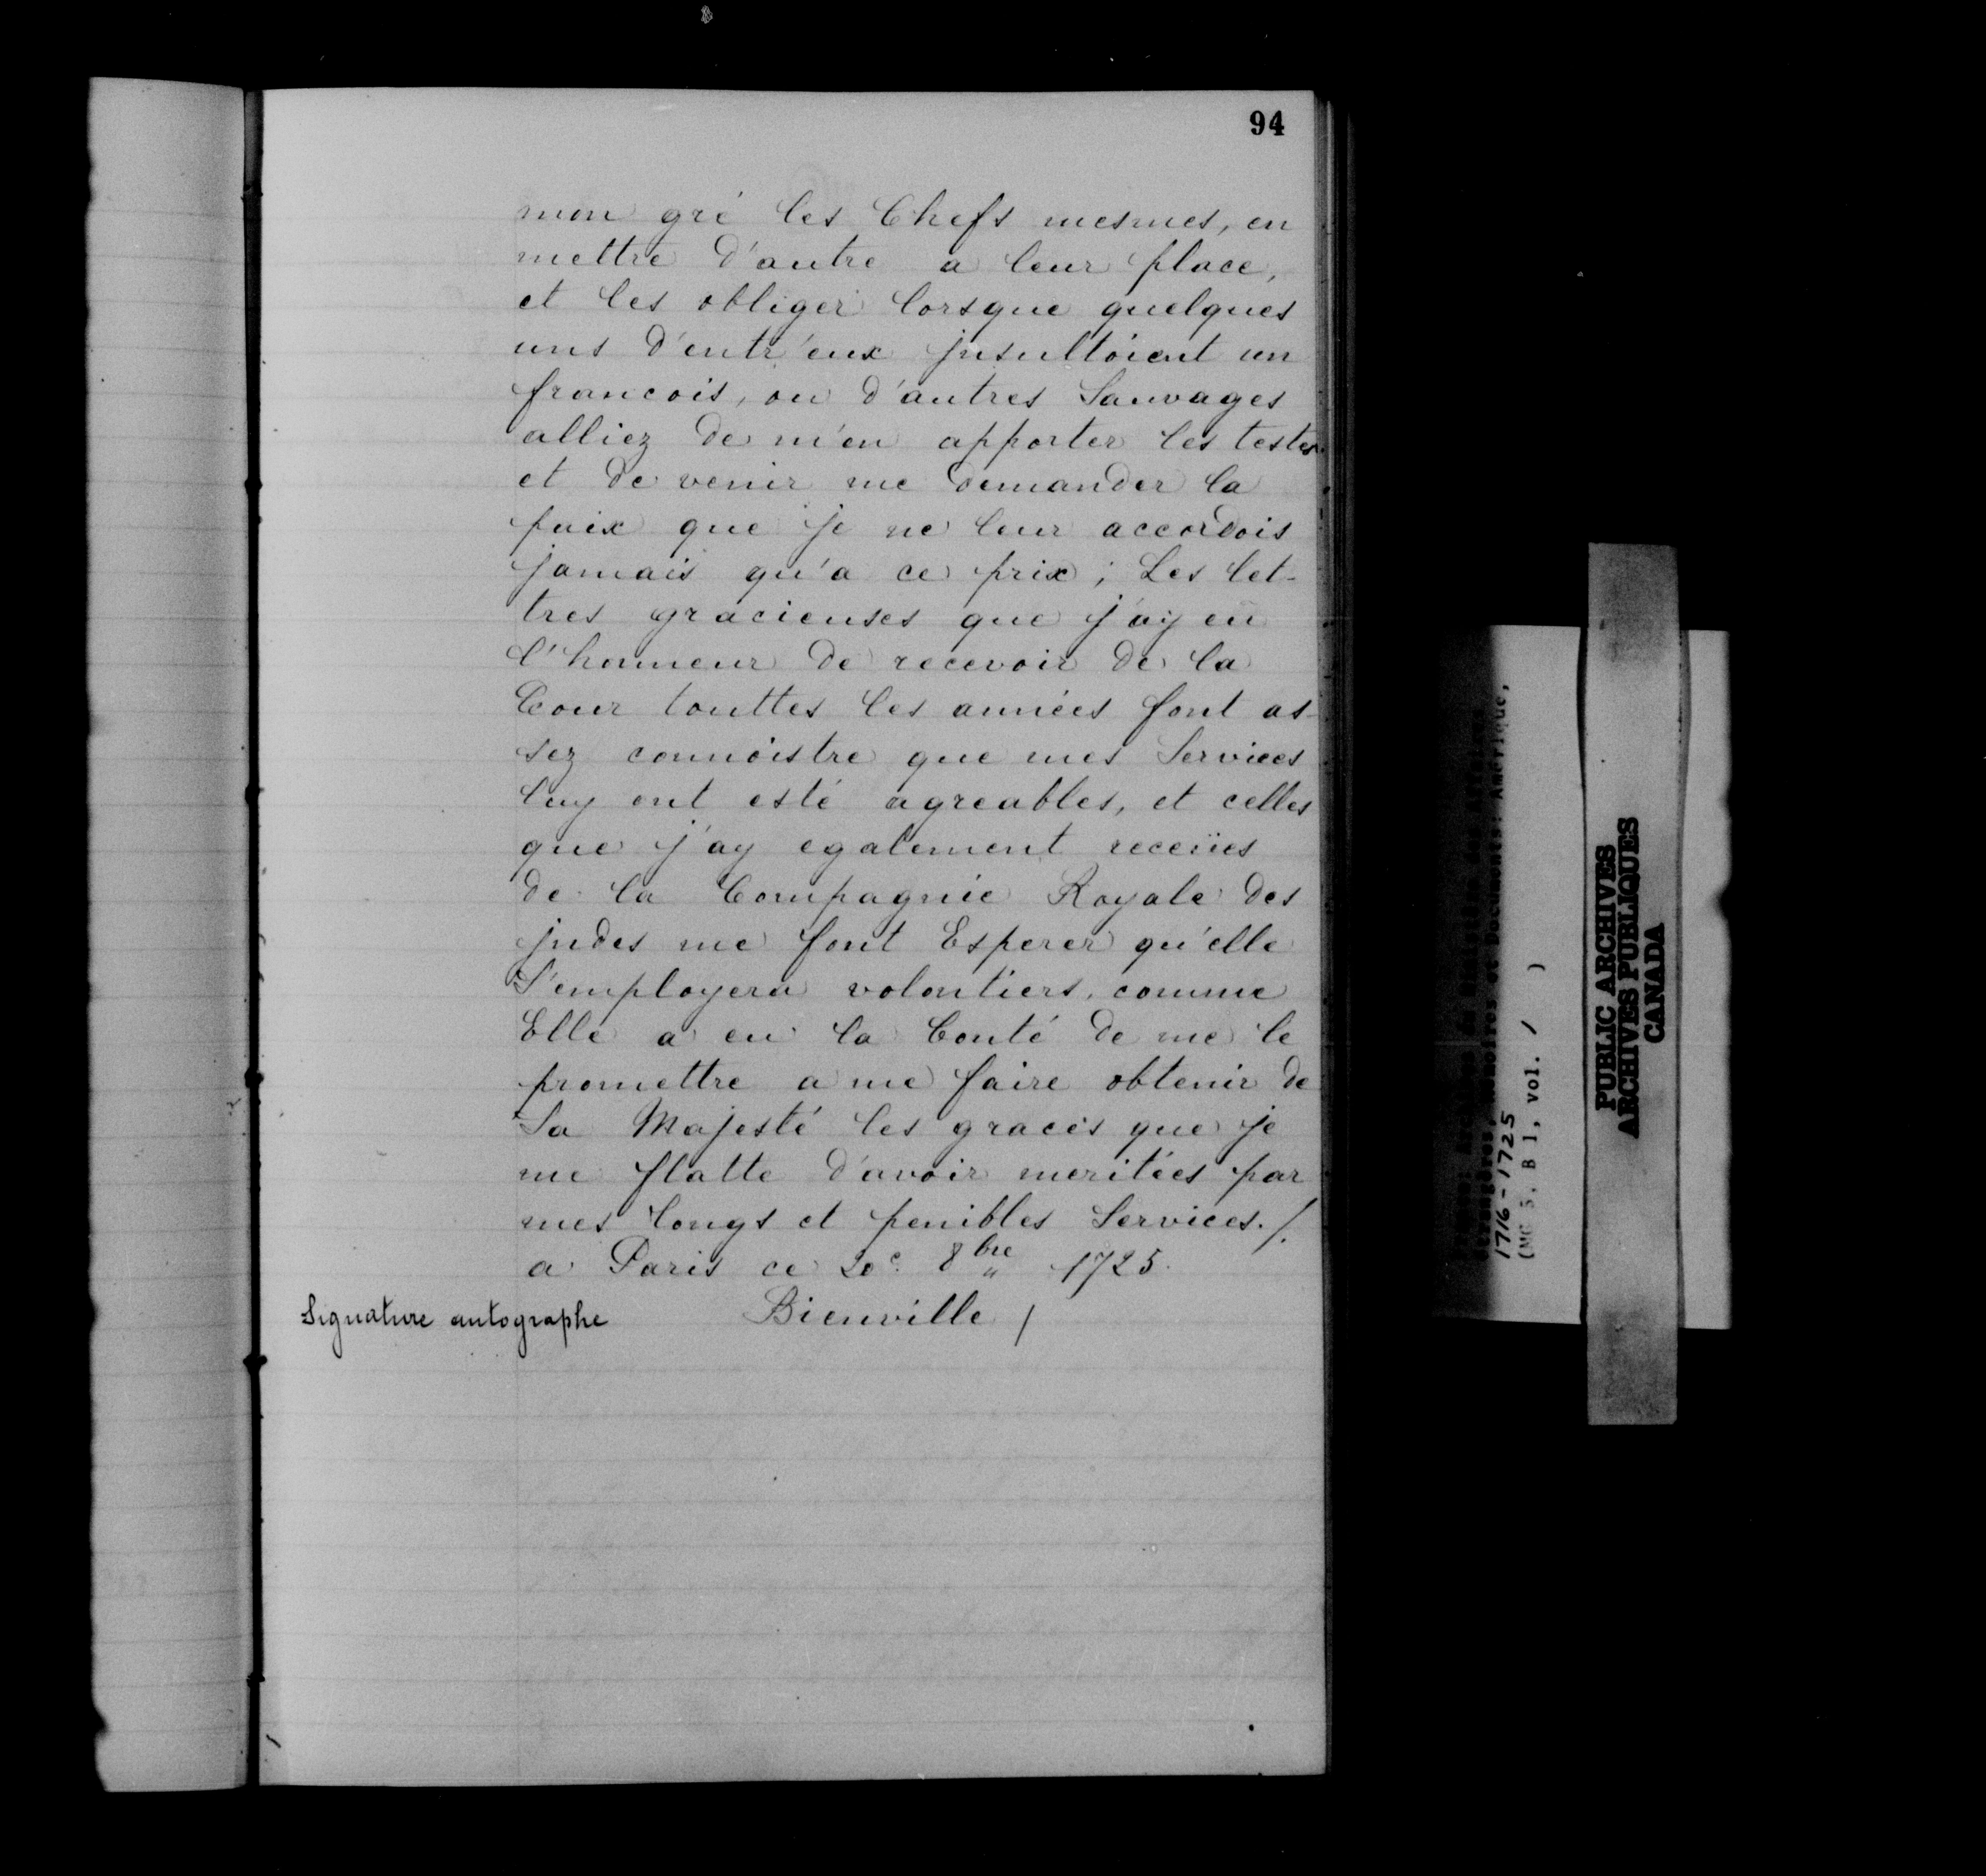 94
mon gré les Chefs mesmes, en
mettre d'autre a leur place,
et les obliger lorsque quelques
uns d'entr'eux jnsultoient un
francois, ou d'autres Sauvages
alliez de m'en apporter les testes
et de venir me demander la
paix que je ne leur accordois
jamais qu'a ce prix ; Les let-
tres gracieuses que j'ay eü
l'honneur de recevoir de la
Cour touttes les années font as-
sez connoistre que mes Services
luy ont esté agreables, et celles
que j'ay egalement receües
de la Compagnie Royale des
jndes me font Esperer qu'elle
S'employera volontiers, comme
Elle a eu la bonté de me le
promettre a me faire obtenir de
Sa Majesté les graces que je
me flatte d'avoir meritées par
mes longs et penibles Services ./.
a Paris ce 20e 8bre 1725.
Signature autographe Bienville /
Documents: Amérique,
1716-1725
(MG 5, B 1, vol. 1 )
PUBLIC ARCHIVES
ARCHIVES PUBLIQUES
CANADA